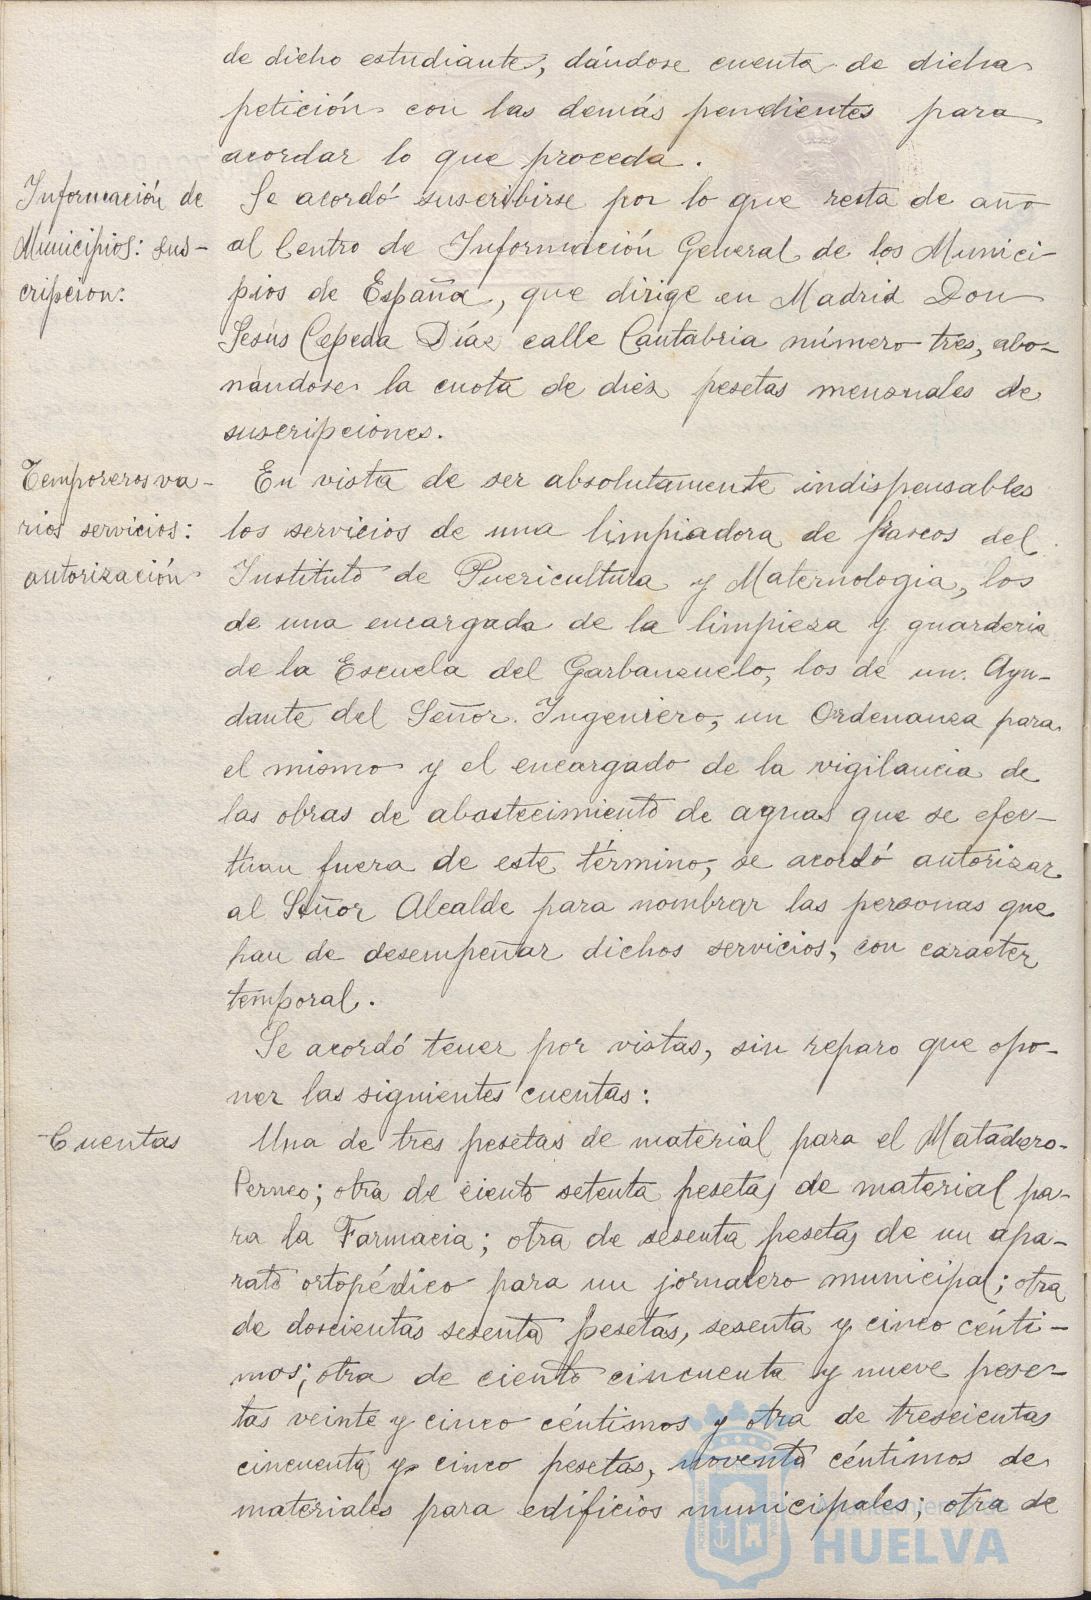 de dicho estudiante, dándose cuenta de dicha
petición con las demás pendientes para
acordar lo que proceda.
Información de
Municipios: sus-
cripcion:
Se acordó suscribirse por lo que resta de año
al Centro de Información General de los Munici-
pios de España, que dirige en Madrid Don
Jesús Cepeda Díaz calle Cantabria número tres, abo-
nándose la cuota de diez pesetas mensuales de
suscripciones.
Temporeros va-
rios servicios:
autorización
En vista de ser absolutamente indispensables
los servicios de una limpiadora de frascos del
Instituto de Puericultura y Maternologia, los
de una encargada de la limpieza y guarderia
de la Escuela del Garbanzuelo, los de un Ayu-
dante del Señor Ingeniero, un Ordenanza para
el mismo y el encargado de la vigilancia de
las obras de abastecimiento de aguas que se efec-
tuan fuera de este término, se acordó autorizar
al Señor Alcalde para nombrar las personas que
han de desempeñar dichos servicios, con caracter
temporal.
Se acordó tener por vistas, sin reparo que opo-
ner las siguientes cuentas:
Cuentas
Una de tres pesetas de material para el Matadero-
Perneo; otra de ciento setenta pesetas de material pa-
ra la Farmacia; otra de sesenta pesetas de un apa-
rato ortopédico para un jornalero municipal; otra
de doscientas sesenta pesetas, sesenta y cinco cénti-
mos; otra de ciento cincuenta y nueve pese-
tas veinte y cinco céntimos y otra de trescientas
cincuenta y cinco pesetas, noventa céntimos de
materiales para edificios municipales; otra de
Ayuntamiento de
HUELVA